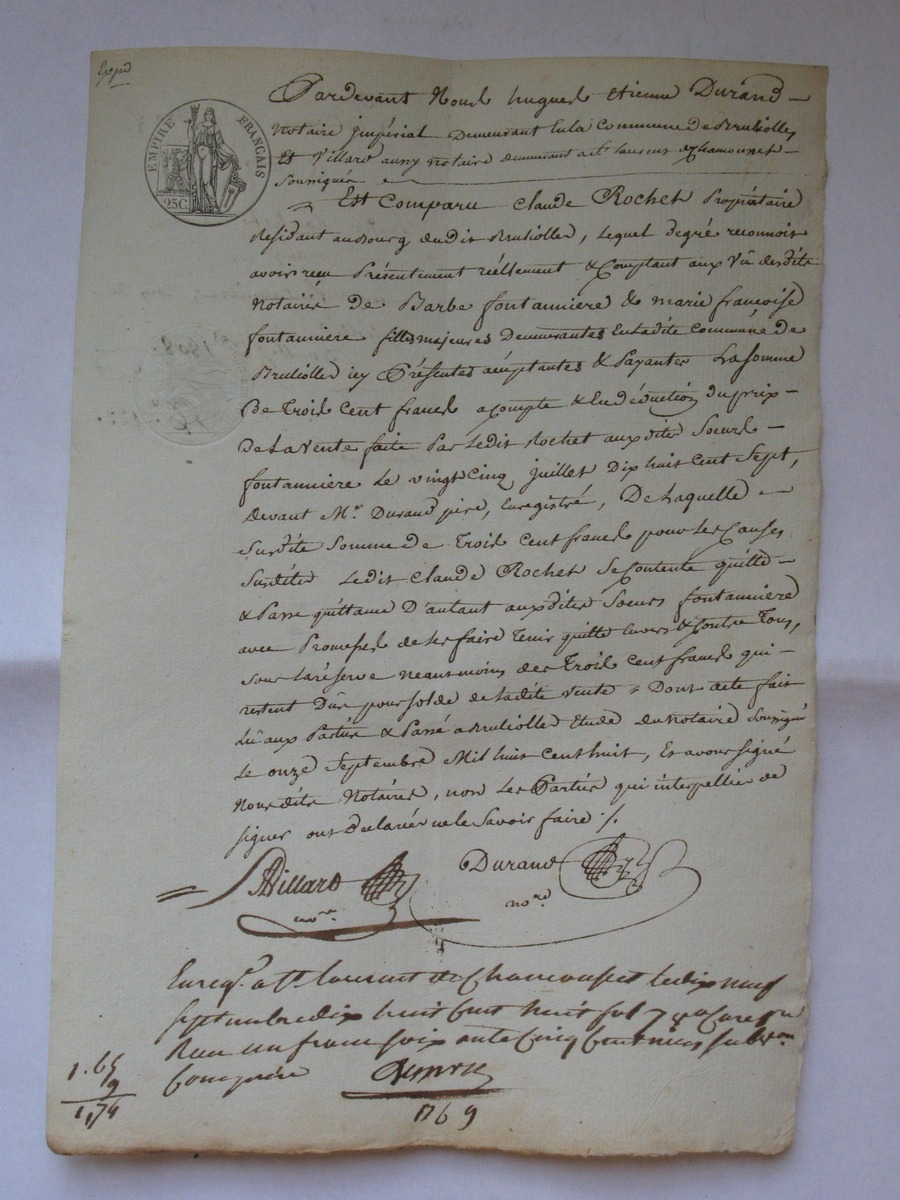 Expd
EMPIRE FRANÇAIS
25C.
Pardevant Nous hugues Etienne Durand
Notaire jmpérial Demeurant En la Commune de Brulioles
Et Villard aussy notaire demeurant a St. laurent de Chamousset
Soussignés
Est Comparu Claude Rochet Propriétaire
Résidant au Bourg dudit Brulioles, Lequel de gré reconnoit
avoir reçu Présentement réellement & Comptant aux Vû desdits
Notaires De Barbe fontanniere & marie françoise
fontanniere filles majeures Demeurantes En Ladite Commune de
Brulioles icy Présentes acceptantes & Payantes La somme
De Trois Cent francs a compte & En déduction du prix
De La vente faite Par Ledit Rochet auxdites Soeurs
fontanniere Le vingt Cinq juillet Dix huit Cent Sept,
devant Me. Durand pere, Enregistré, De Laquelle
Susdite Somme de Trois Cent francs pour les Causes
Susdites Ledit Claude Rochet Se Contente quitte
& Passe quittance D'autant auxdites Soeurs fontanniere
avec Promesses de les faire Tenir quitte Envers & Contre Tous,
sous la réserve neantmoins des Trois Cent francs qui
restent Dûs pour solde de Ladite vente = Dont acte fait
Lû aux Parties & Passé a Brulioles Etude du Notaire Soussigné
Le onze Septembre Mil huit Cent huit, Et avons signé
Nous dits Notaires, non Les Parties qui interpellées de
signer ont declarées ne le Savoir faire ./.
Villard Durand
nore. nore.
Enregt. a St. laurent de Chamousset le dix neuf
septembre dix huit cent huit fol 74
Reçu un franc soix ante Cinq Centimes
Compris
1.65
9
1,74
1769